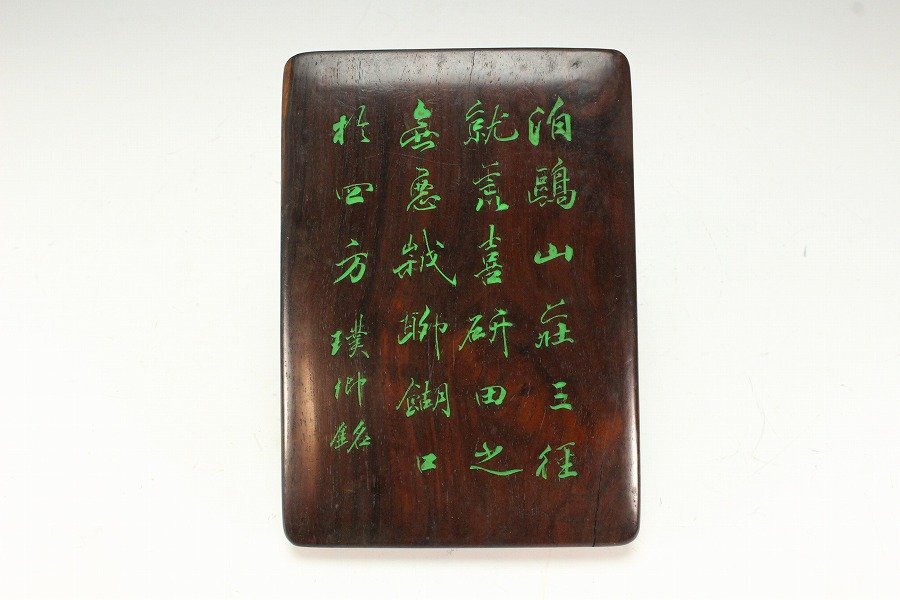 泊鷗山莊三徑
就荒喜研田之
無惡歲聊餬口
於四方璞卿銘